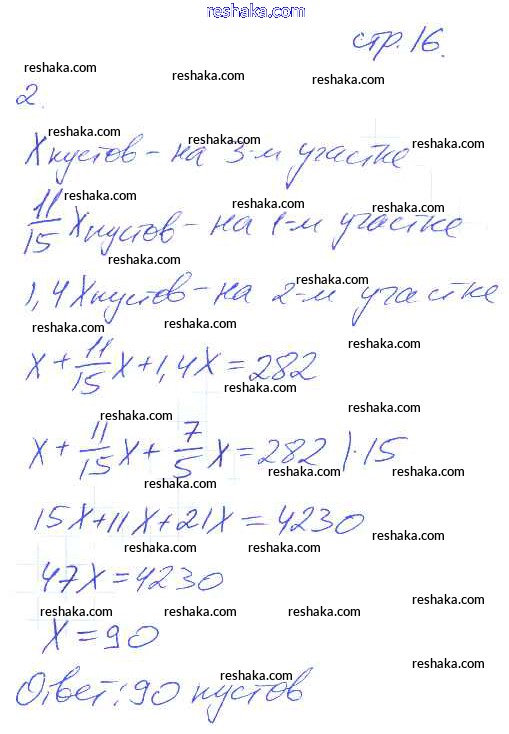 reshaka.com
стр. 16.
reshaka.com
reshaka.com reshaka.com
2.
reshaka.com
reshaka.com
X кустов - на 3-м участке
reshaka.com reshaka.com
11/15 X кустов - на 1-м участке
reshaka.com
reshaka.com
1,4 X кустов - на 2-м участке
reshaka.com reshaka.com
reshaka.com
X + 11/15 X + 1,4X = 282
reshaka.com
reshaka.com
reshaka.com
X + 11/15 X + 7/5 X = 282 | · 15
reshaka.com reshaka.com
15X + 11X + 21X = 4230
reshaka.com reshaka.com reshaka.com
47X = 4230
reshaka.com reshaka.com reshaka.com reshaka.com
X = 90
reshaka.com
reshaka.com
Ответ: 90 кустов
reshaka.com